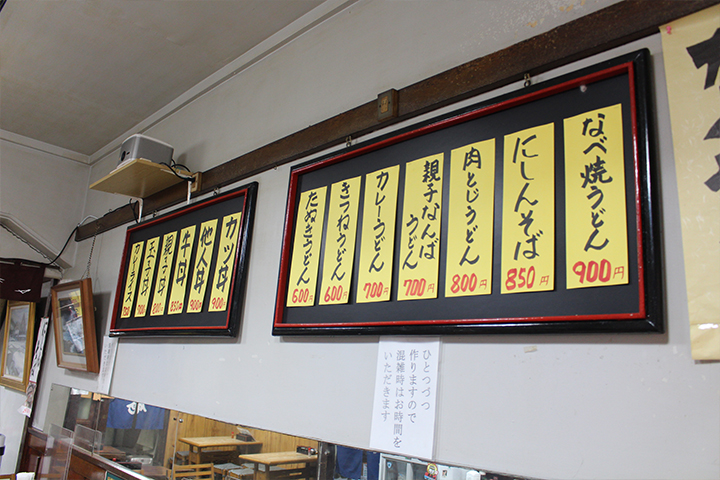 なべ焼うどん
900円
にしんそば
850円
肉とじうどん
800円
親子なんば
うどん
700円
カレーうどん
700円
きつねうどん
600円
たぬきうどん
600円
カツ丼
900円
他人丼
900円
牛丼
850円
玉子丼
700円
カレーライス
ひとつづつ
作りますので
混雑時はお時間を
いただきます